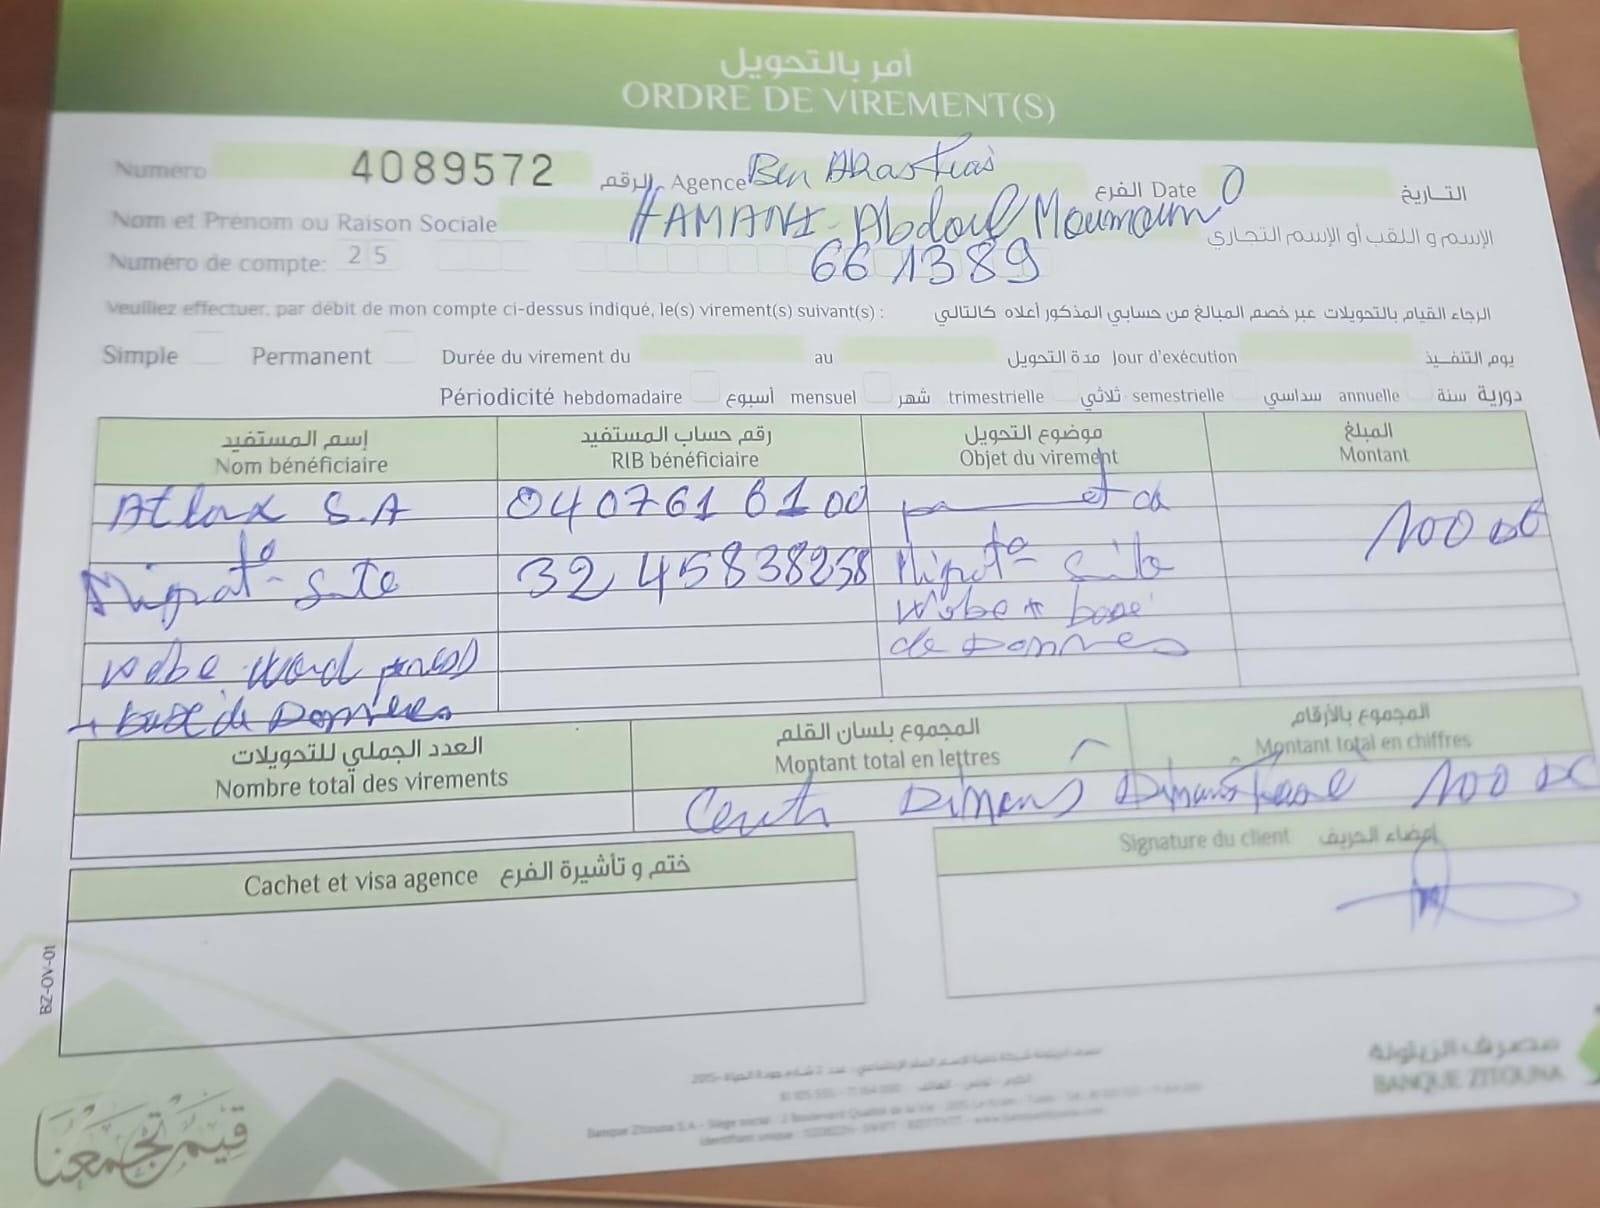 أمر بالتحويل
ORDRE DE VIREMENT(S)
Numéro 4089572 الرقم Agence Ben الفرع Date 0 التاريخ
Nom et Prénom ou Raison Sociale HAMANI Abdoul Moumoum الإسم و اللقب أو الإسم التجاري
Numéro de compte: 25 661389
Veuillez effectuer, par débit de mon compte ci-dessus indiqué, le(s) virement(s) suivant(s) : الرجاء القيام بالتحويلات عبر خصم المبالغ من حسابي المذكور أعلاه كالتالي
Simple Permanent Durée du virement du au مدة التحويل Jour d'exécution يوم التنفيذ
Périodicité hebdomadaire أسبوع mensuel شهر trimestrielle ثلاثي semestrielle سداسي annuelle سنة دورية
إسم المستفيد رقم حساب المستفيد موضوع التحويل المبلغ
Nom bénéficiaire RIB bénéficiaire Objet du virement Montant
Atlax S.A 0407616100
100
Migrat° Site 32 45838258 Migrat° site
webe + base
webe word press de Donnees
+ base de Donnees
العدد الجملي للتحويلات المجموع بلسان القلم المجموع بالأرقام
Nombre total des virements Montant total en lettres Montant total en chiffres
Cent Dinans 100
Cachet et visa agence ختم و تأشيرة الفرع Signature du client إمضاء الحريف
BZ-OV-01
مصرف الزيتونة
BANQUE ZITOUNA
قيم تجمعنا